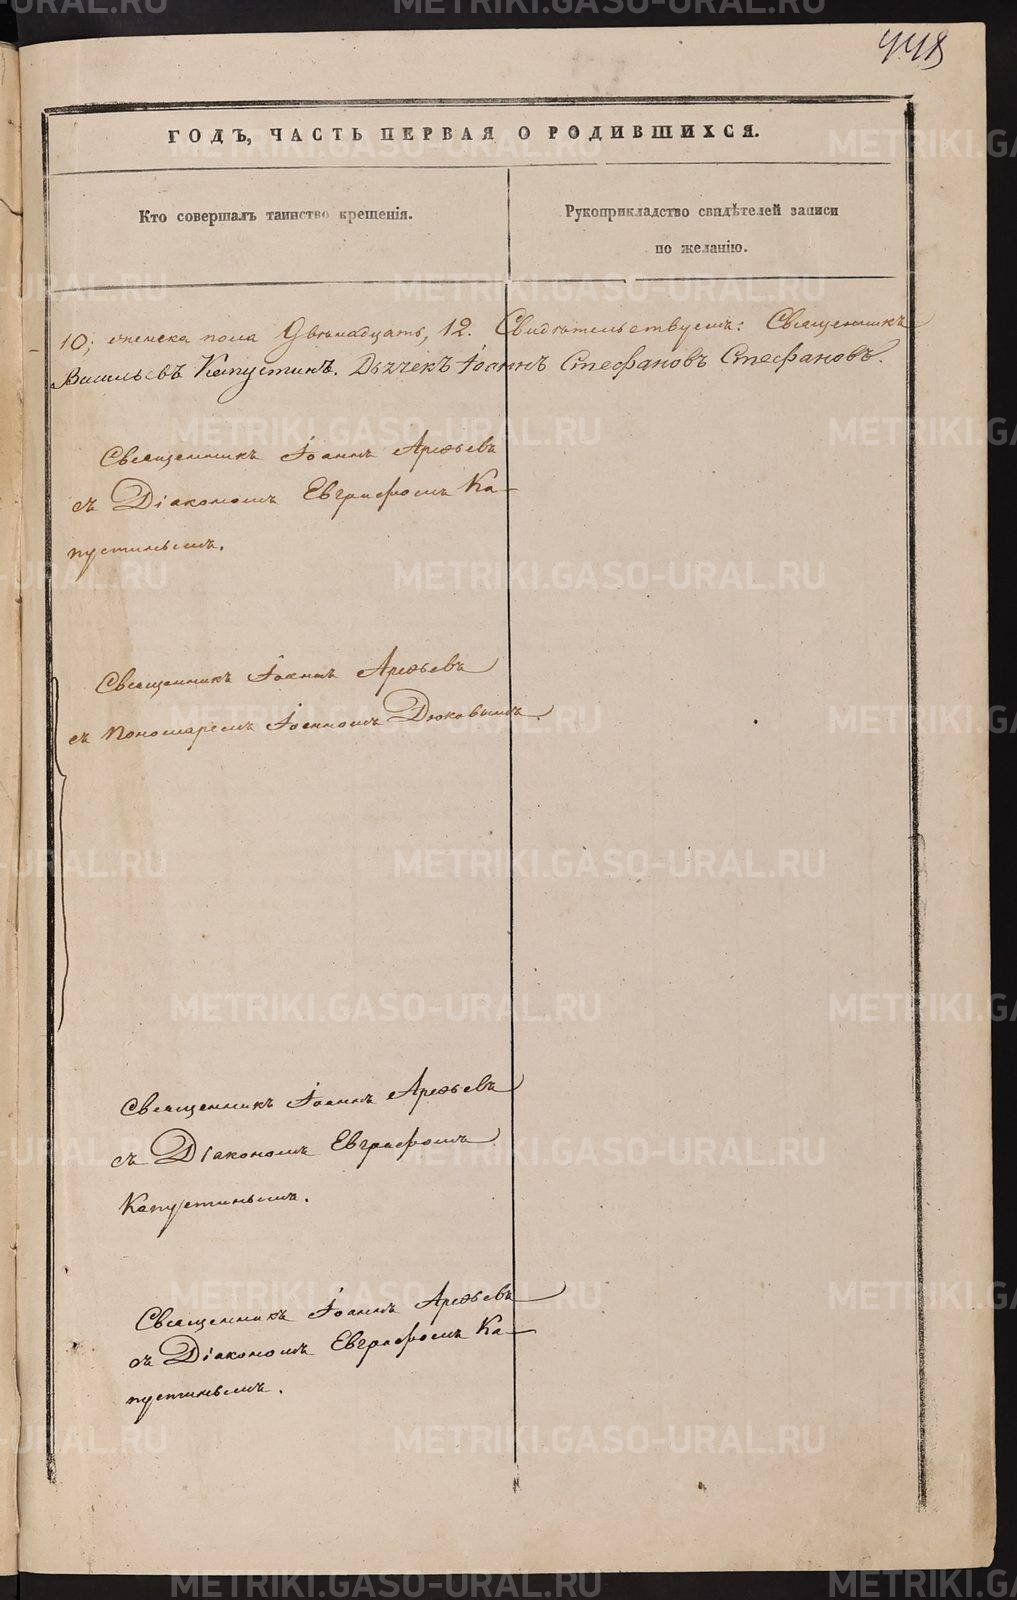 448
ГОДЪ, ЧАСТЬ ПЕРВАЯ О РОДИВШИХСЯ.
Кто совершалъ таинство крещенія.
Рукоприкладство свидѣтелей записи
по желанію.
10; женска пола Двѣнадцать, 12. Свидѣтельствуемъ: Священникъ
Васильевъ Капустинъ. Дьячекъ Іоаннъ Стефановъ Стефановъ.
Священникъ Іоаннъ Арефьевъ
съ Діакономъ Евграфомъ Ка-
пустинымъ.
Священникъ Іоаннъ Арефьевъ
съ Пономаремъ Іоанномъ Дюковымъ.
Священникъ Іоаннъ Арефьевъ
съ Діакономъ Евграфомъ
Капустинымъ.
Священникъ Іоаннъ Арефьевъ
съ Діакономъ Евграфомъ Ка-
пустинымъ.
METRIKI.GASO-URAL.RU